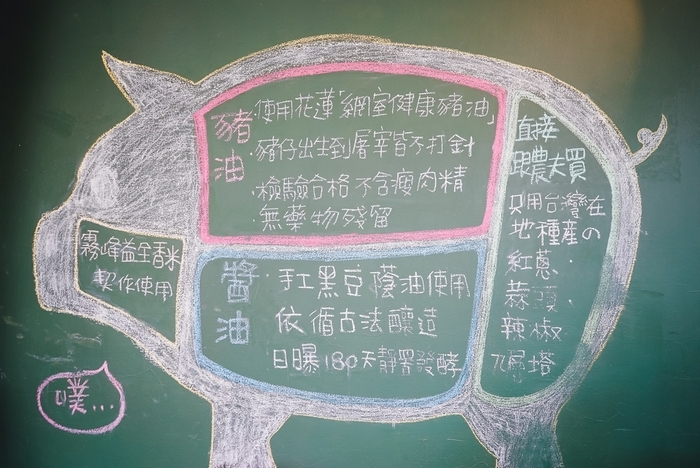 豬油
·使用花蓮「網室健康豬油」
·豬仔出生到屠宰皆不打針
·檢驗合格 不含瘦肉精
·無藥物殘留
霧峰益全香米
契作使用
醬油
·手工黑豆蔭油使用
依循古法釀造
·日曝180天靜置發酵
直接
跟農夫買
只用台灣在
地種產の
紅蔥·
蒜頭·
辣椒
九層塔
噗...